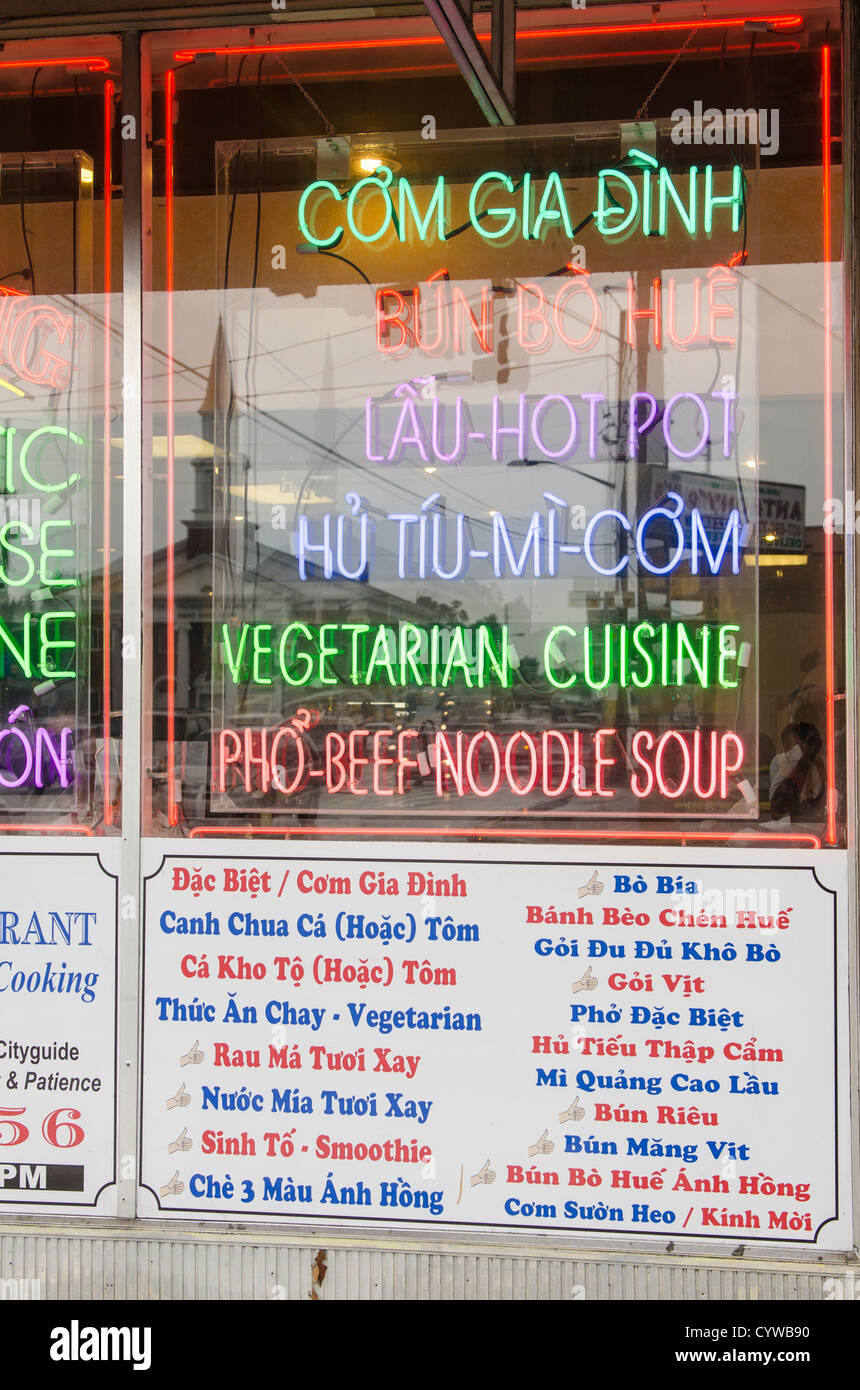 CƠM GIA ĐÌNH
BÚN BÒ HUẾ
LẨU-HOT POT
HỦ TÍU-MÌ-CƠM
VEGETARIAN CUISINE
PHỞ-BEEF NOODLE SOUP
NG
IC
SE
NE
ÓN
RANT
Cooking
Cityguide
& Patience
56
PM
Đặc Biệt / Cơm Gia Đình
Canh Chua Cá (Hoặc) Tôm
Cá Kho Tộ (Hoặc) Tôm
Thức Ăn Chay - Vegetarian
Rau Má Tươi Xay
Nước Mía Tươi Xay
Sinh Tố - Smoothie
Chè 3 Màu Ánh Hồng
Bò Bía
Bánh Bèo Chén Huế
Gỏi Đu Đủ Khô Bò
Gỏi Vịt
Phở Đặc Biệt
Hủ Tiếu Thập Cẩm
Mì Quảng Cao Lầu
Bún Riêu
Bún Măng Vịt
Bún Bò Huế Ánh Hồng
Cơm Sườn Heo / Kính Mời
alamy
Image ID: CYWB90
www.alamy.com